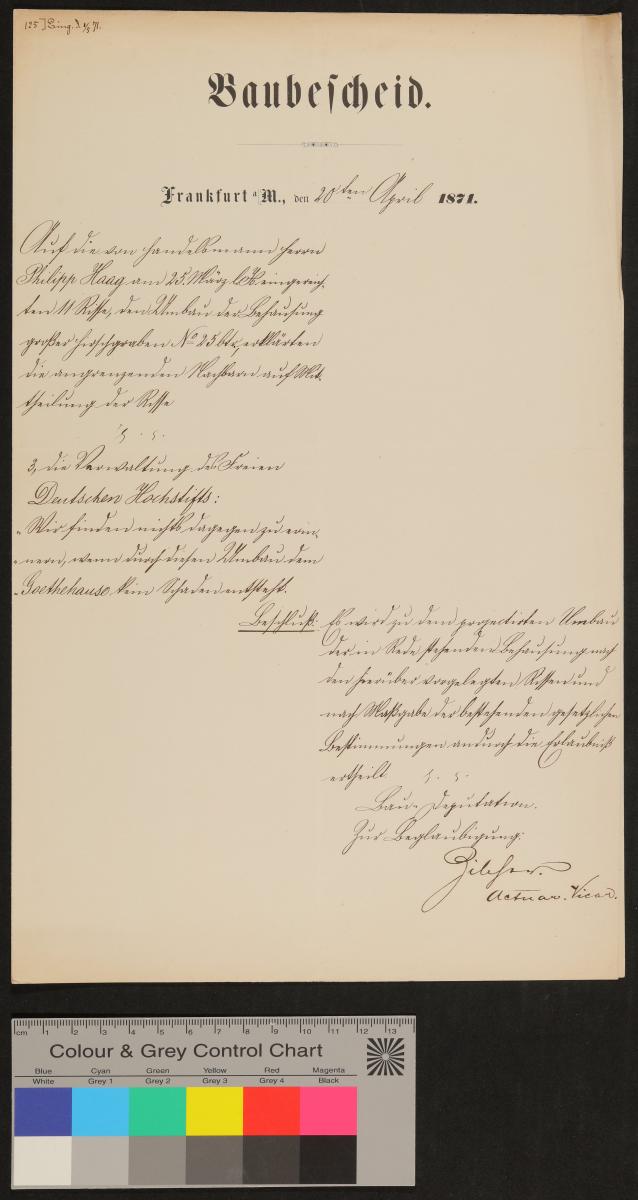 125] Eing. d. 1/5 71.
Baubescheid.
Frankfurt a/M., den 20ten April 1871.
Auf die von Handelsmann Herrn
Philipp Haag am 25. März l. Js. eingereich-
ten 11 Risse, den Umbau der Behausung
großer Hirschgraben No 25 btr., erklärten
die angrenzenden Nachbarn auf Mit-
theilung der Risse
pp.
3, die Verwaltung des Freien
Deutschen Hochstifts:
"Wir finden nichts dagegen zu erin-
"nern, wenn durch diesen Umbau dem
"Goethehause kein Schaden entsteht.
Beschluß: Es wird zu dem projectirten Umbau
der in Rede stehenden Behausung nach
den hierüber vorgelegten Rissen und
nach Maßgabe der bestehenden gesetzlichen
Bestimmungen andurch die Erlaubniß
ertheilt
Bau-Deputation.
Zur Beglaubigung:
Actuar. Vicar.
cm 1 2 3 4 5 6 7 8 9 10 11 12 13
Colour & Grey Control Chart
Blue Cyan Green Yellow Red Magenta
White Grey 1 Grey 2 Grey 3 Grey 4 Black